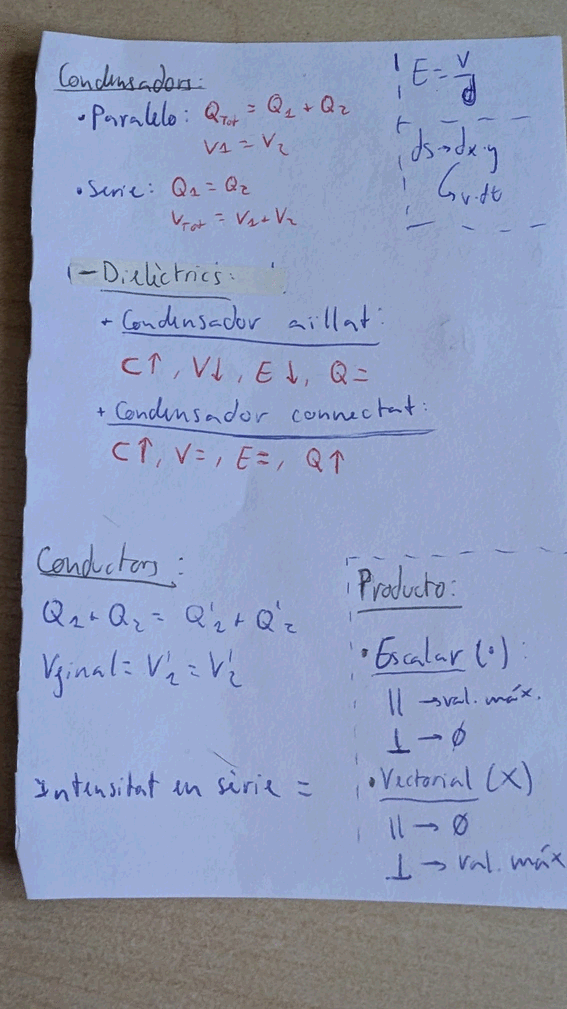 Condensadors:
• Paralelo: Q_Tot = Q_1 + Q_2
V_1 = V_2
• Serie: Q_1 = Q_2
V_Tot = V_1 + V_2
E = V/d
ds → dx·y
↳ v·dt
- Dielèctrics:
+ Condensador aillat:
C↑, V↓, E↓, Q=
+ Condensador connectat:
C↑, V=, E=, Q↑
Conductors:
Q_1 + Q_2 = Q'_1 + Q'_2
V_final = V'_1 = V'_2
Intensitat en sèrie =
Producto:
• Escalar (·):
|| → val. máx.
⊥ → ∅
• Vectorial (X)
|| → ∅
⊥ → val. máx